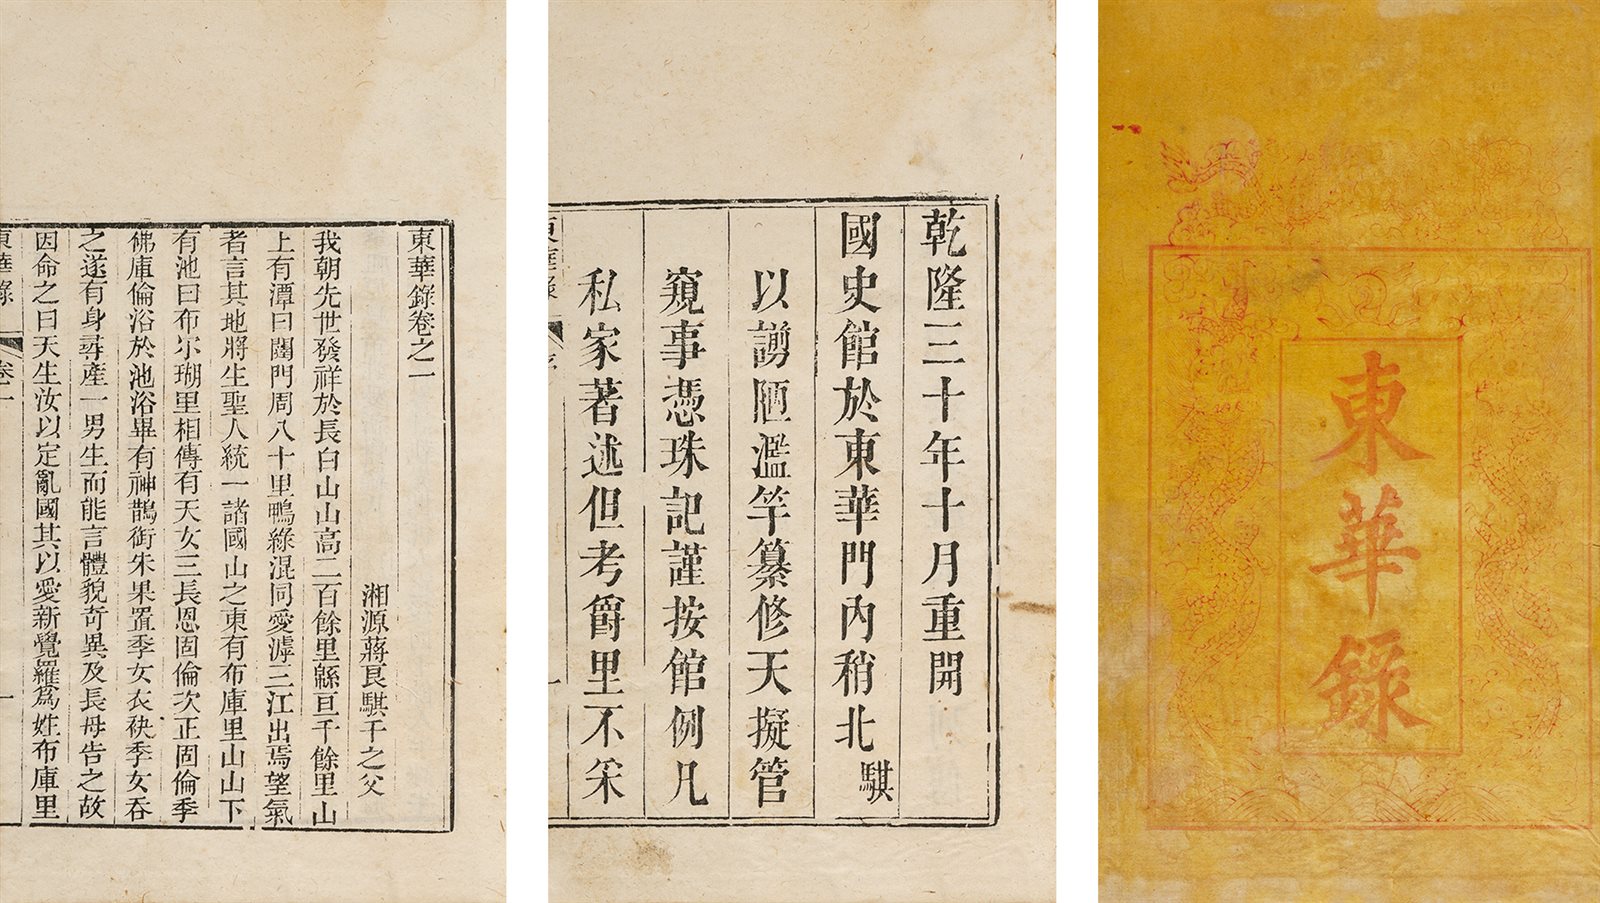 東華錄
乾隆三十年十月重開
國史館於東華門內稍北騏
以謭陋濫竽纂修天擬管
窺事憑珠記謹按館例凡
私家著述但考爵里不采
東華錄
一
東華錄卷之一
湘源蔣良騏千之父
我朝先世發祥於長白山山高二百餘里緜亘千餘里山
上有潭曰闥門周八十里鴨綠混同愛滹三江出焉望氣
者言其地將生聖人統一諸國山之東有布庫里山山下
有池曰布尓瑚里相傳有天女三長恩固倫次正固倫季
佛庫倫浴於池浴畢有神鵲銜朱果置季女衣袂季女吞
之遂有身尋產一男生而能言體貌奇異及長母告之故
因命之曰天生汝以定亂國其以愛新覺羅爲姓布庫里
東華錄
卷一
一